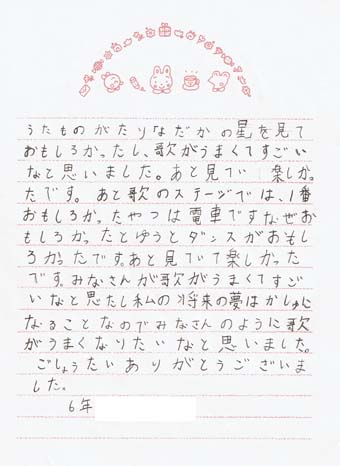 うたものがたり「よだかの星」を見て
おもしろかったし、歌がうまくてすごい
なと思いました。あと見てい 楽しかっ
たです。 あと歌のステージでは、1番
おもしろかったやつは電車ですなぜお
もしろかったとゆうとダンスがおもし
ろかったです。あと見ていて楽しかった
です。みなさんが歌がうまくてすご
いなと思たし私の将来の夢はかしゅに
なることなのでみなさんのように歌
がうまくなりたいなと思いました。
ごしょうたいありがとうございま
した。
6年